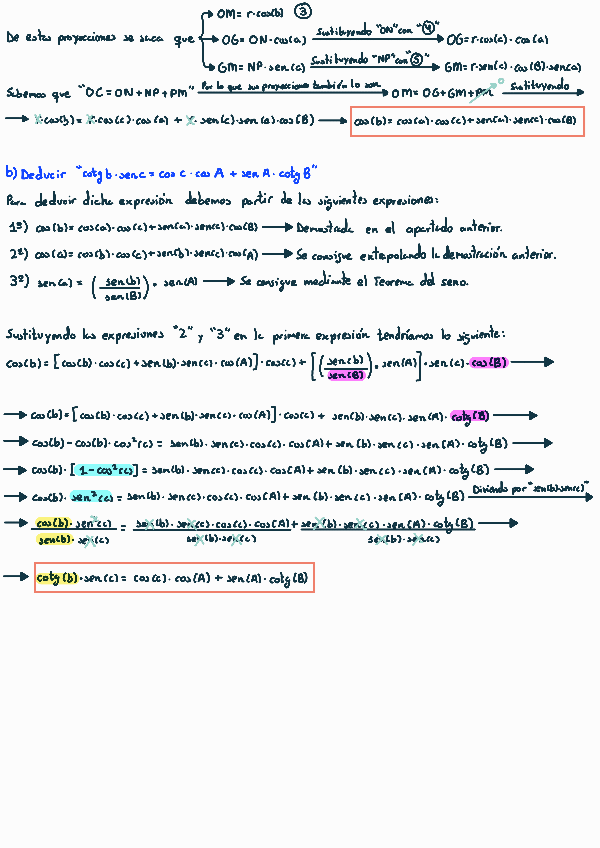 OM = r·cos(b) ③
De estas proyecciones se saca que OG = ON·cos(a) Sustituyendo "ON" con "④" OG = r·cos(c)·cos(a)
GM = NP·sen(c) Sustituyendo "NP" con "⑤" GM = r·sen(c)·cos(B)·sen(a)
Sabemos que "OC = ON + NP + PM" Por lo que sus proyecciones también lo son OM = OG + GM + PM 0 Sustituyendo
→ r·cos(b) = r·cos(c)·cos(a) + r·sen(c)·sen(a)·cos(B) → cos(b) = cos(a)·cos(c) + sen(a)·sen(c)·cos(B)
b) Deducir "cotg b·sen c = cos c·cos A + sen A·cotg B"
Para deducir dicha expresión debemos partir de las siguientes expresiones:
1º) cos(b) = cos(a)·cos(c) + sen(a)·sen(c)·cos(B) → Demostrada en el apartado anterior.
2º) cos(a) = cos(b)·cos(c) + sen(b)·sen(c)·cos(A) → Se consigue extrapolando la demostración anterior.
3º) sen(a) = (sen(b)/sen(B))·sen(A) → Se consigue mediante el Teorema del seno.
Sustituyendo las expresiones "2" y "3" en la primera expresión tendríamos lo siguiente:
cos(b) = [cos(b)·cos(c) + sen(b)·sen(c)·cos(A)]·cos(c) + [(sen(b)/sen(B))·sen(A)]·sen(c)·cos(B) →
→ cos(b) = [cos(b)·cos(c) + sen(b)·sen(c)·cos(A)]·cos(c) + sen(b)·sen(c)·sen(A)·cotg(B) →
→ cos(b) - cos(b)·cos²(c) = sen(b)·sen(c)·cos(c)·cos(A) + sen(b)·sen(c)·sen(A)·cotg(B) →
→ cos(b)·[1-cos²(c)] = sen(b)·sen(c)·cos(c)·cos(A) + sen(b)·sen(c)·sen(A)·cotg(B) →
→ cos(b)·sen²(c) = sen(b)·sen(c)·cos(c)·cos(A) + sen(b)·sen(c)·sen(A)·cotg(B) Dividiendo por "sen(b)·sen(c)" →
→ cos(b)·sen²(c)/sen(b)·sen(c) = sen(b)·sen(c)·cos(c)·cos(A)/sen(b)·sen(c) + sen(b)·sen(c)·sen(A)·cotg(B)/sen(b)·sen(c) →
→ cotg(b)·sen(c) = cos(c)·cos(A) + sen(A)·cotg(B)